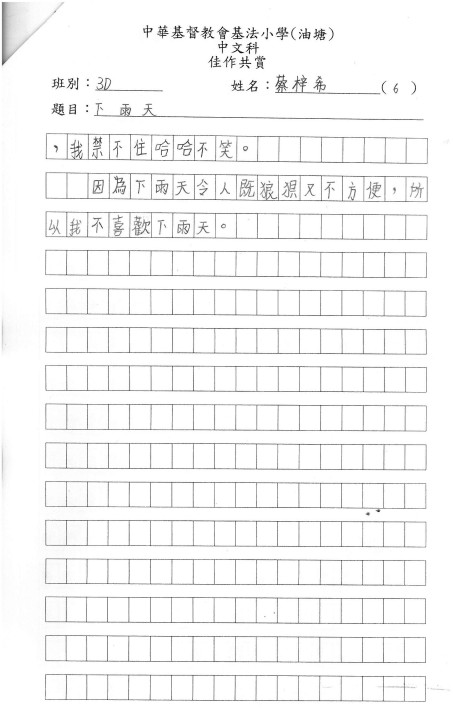 中華基督教會基法小學(油塘)
中文科
佳作共賞
班別：3D 姓名：蔡梓希(6)
題目：下雨天
，我禁不住哈哈不笑。
因為下雨天令人既狼狽又不方便，所
以我不喜歡下雨天。